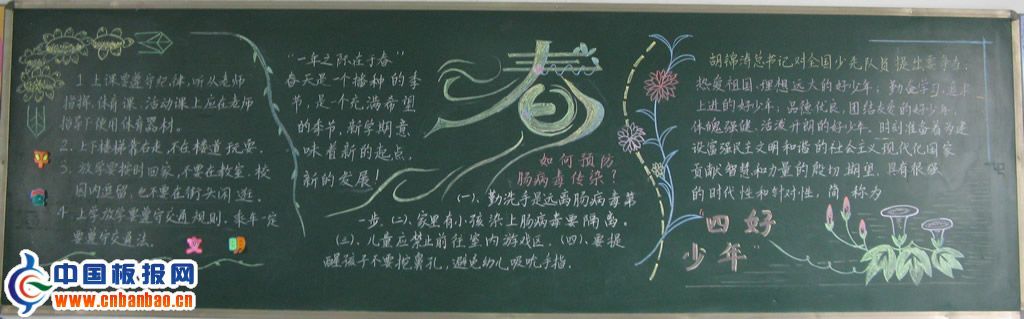 1 上课要遵守纪律,听从老师
指挥,体育课、活动课上应在老师
指导下使用体育器材。
2、上下楼梯靠右走,不在楼道玩耍。
3、放学要按时回家,不要在教室、校
园内逗留,也不要在街头闲逛。
4、上学放学要遵守交通规则,乘车一定
要遵守交通法。
"一年之际在于春"
春天是一个播种的季
节,是个充满希望
的季节,新学期意
味着新的起点,
新的发展!
春
如何预防
肠病毒传染?
(一)、勤洗手是远离肠病毒第
一步,(二)、家里有小孩染上肠病毒要隔离。
(三)、儿童应禁止前往室内游戏区。(四)、要提
醒孩子不要挖鼻孔,避免幼儿吸吮手指.
胡锦涛总书记对全国少先队员提出要争当:
热爱祖国、理想远大的好少年;勤奋学习、追求
上进的好少年;品德优良、团结友爱的好少年;
体魄强健、活泼开朗的好少年,时刻准备着为建
设富强民主文明和谐的社会主义现代化国家
贡献智慧和力量的殷切期望,具有很强
的时代性和针对性,简称为
"四好
少年"
中国板报网
www.cnbanbao.cn